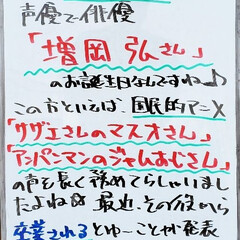 声優で俳優
「増岡弘さん」
のお誕生日なんですね♪
この方といえば、国民的アニメ
「サザエさんのマスオさん」
「アンパンマンのジャムおじさん」
の声を長く務めてらしゃいまし
たよね 最近、その役から
卒業されるとゆーことが発表